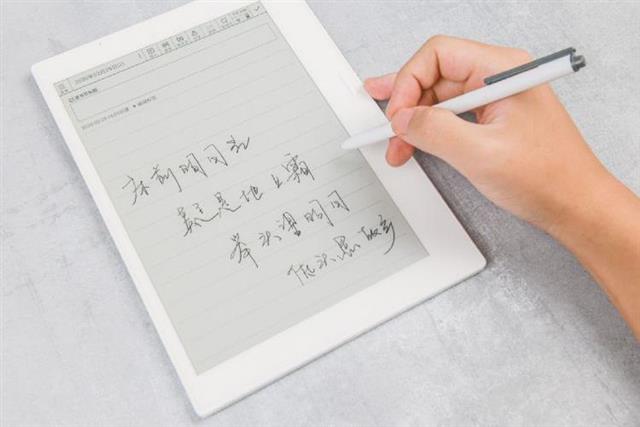 床前明月光
疑是地上霜
举头望明月
低头思故乡